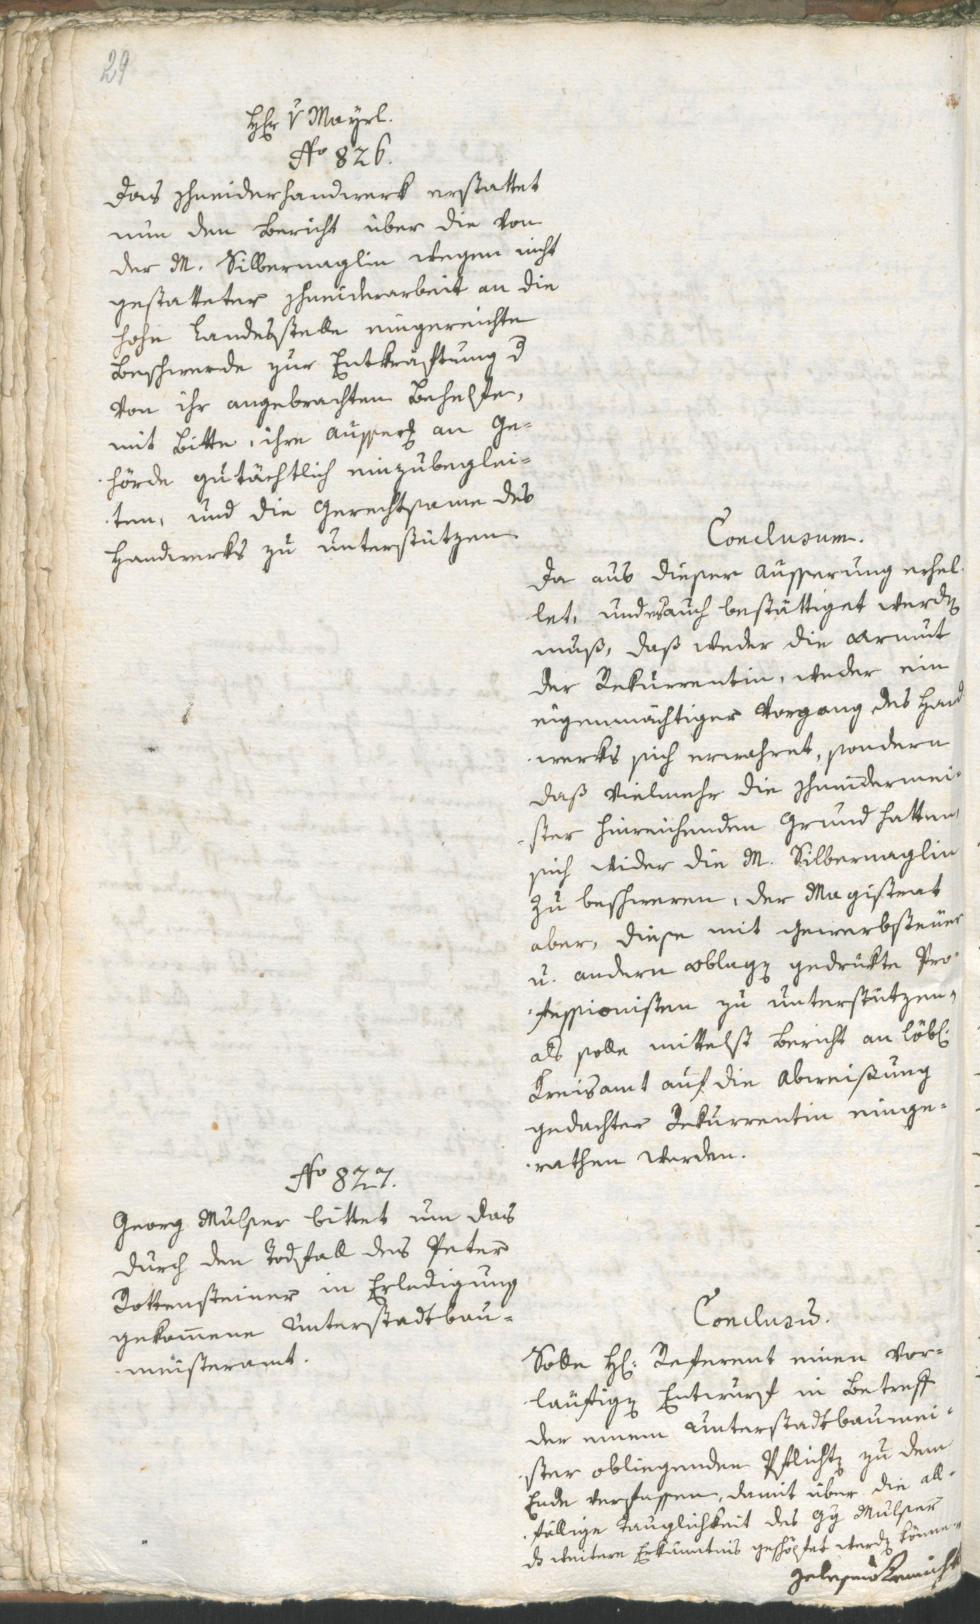 29
Hr v Mayrl.
No 826.
Das Schneiderhandwerk erstattet
nun den Bericht über die von
der M. Silbernaglin wegen nicht
gestatteter Schneiderarbeit an die
hohe Landesstelle eingereichte
Beschwerde zur Entkräftung d
von ihr angebrachten Behelfe,
mit Bitte, ihre Äusserg an Ge=
hörde gutächtlich einzubeglei=
ten, und die Gerechtsame des
Handwerks zu unterstützen
Conclusum.
Da aus dieser Äusserung erhel=
let, und es auch bestättiget werden
muß, daß weder die Armut
der Rekurrentin, weder ein
eigenmächtiger Vorgang des Hand
werks sich erwahret, sondern
daß vielmehr die Schneidermei=
ster hinreichenden Grund hatten,
sich wider die M. Silbernaglin
zu beschweren, der Magistrat
aber, diese mit Gewerbsteuer
u. andern Ablagen gedrükte Pro=
fessionisten zu unterstützen,
als solle mittelst Bericht an löbl:
Kreisamt auf die Abweisung
gedachter Rekurrentin einge=
rathen werden.
No 827.
Georg Mulser bittet um das
durch den Todfall des Peter
Rottensteiner in Erledigung
gekommene Unterstadtbau=
meisteramt.
Conclusū.
Solle H: Referent einen vor=
läufigen Entwurf in Betreff
der einem Unterstadtbaumei=
ster obliegenden Pflichten zu dem
Ende verfassen, damit über die all=
fällige Tauglichkeit des Gg Mulser
d weitere Erkänntnis geschöpfet werden könne